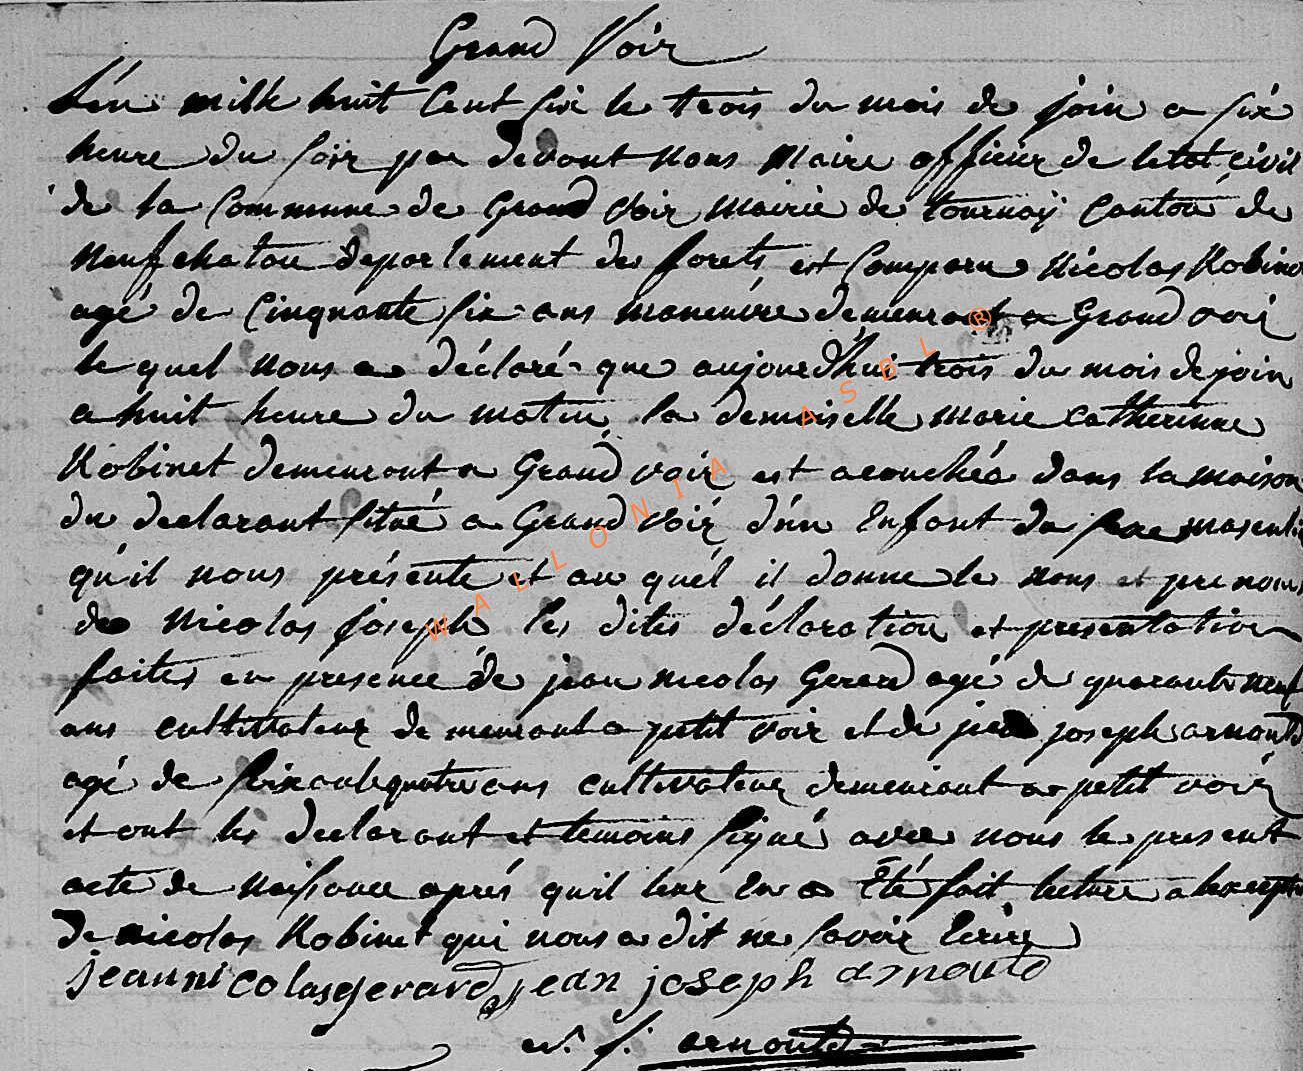 Grand Voir
L'én mille huit Cent six le trois du mois de join a six
heure du soir par devant nous Maire officier de letat civil
de la Commune de Grand Voir mairie de tournaÿ Canton de
Neufchatau departement de forets est Comparu Nicolas Robinet
agé de Cinquante six ans maneuvre demeurant a Grand voir
le quel nous a déclaré que aujourd'hui trois du mois de join
a huit heure du matin la demoiselle marie catherinne
Robinet demeurant a Grand voir est acouchéa dans la maison
du declarant situé a Grand Voir d'un Enfant du sexe masculin
qu'il nous présente et au quél il donne le noms et prenoms
de Nicolas Joseph les dites déclaration et presentation
faites en presence de jean nicolas Gerard agé de quarante neuf
ans cultivateur demeurant a petit voir et de jean joseph arnould
agé de soixante quatre ans cultivateur demeurant a petit voir
et ont les declarant et temoins signé avec nous le present
acte de Naissance aprés qu'il leur En a Eté fait lecture a lexception
de nicolas Robinet qui nous a dit ne savoir Ecrire
jean nicolas gerard jean joseph arnould
arnould
WALLONIA ASBL ®